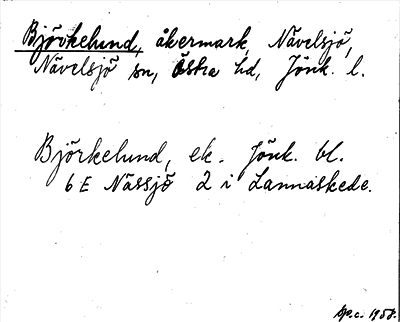 Björkelund, åkermark, Nävelsjö,
Nävelsjö sn, Östra hd, Jönk. l.
Björkelund, ek. Jönk. bl.
6 E Nässjö 2 i Lannaskede.
1958.